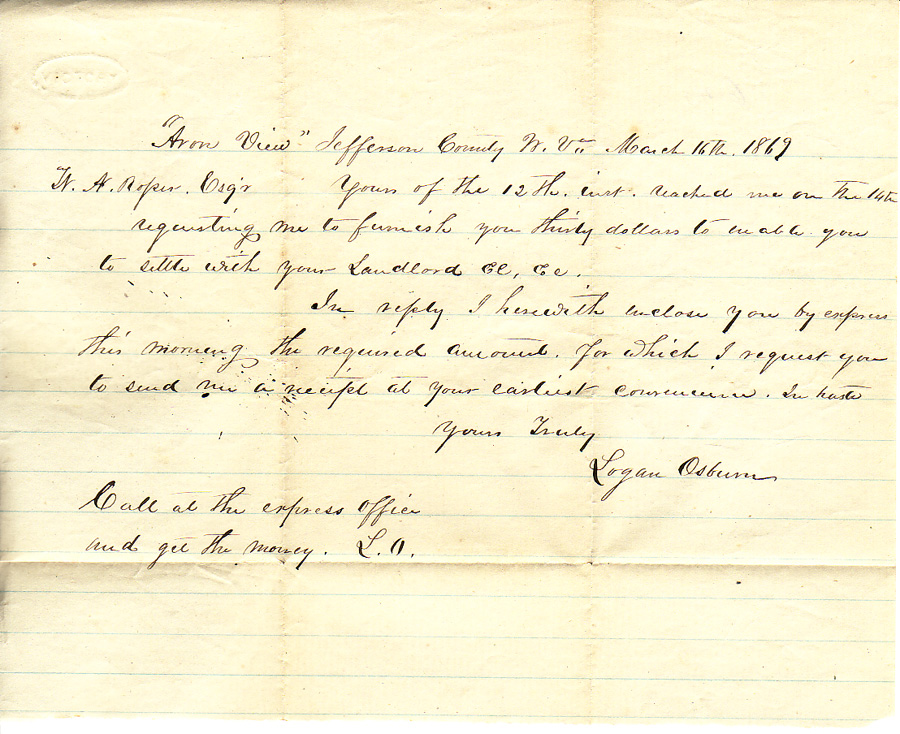 "Avon View" Jefferson County W. Va. March 16th. 1869
W. A. Roper. Esqr Yours of the 12th. inst. reached me on the 14th
requesting me to furnish you thirty dollars to enable you
to settle with your Landlord &c, &c.
In reply I herewith enclose you by express
this morning the required amount. for which I request you
to send me a receipt at your earliest convenience. In haste
Yours Truly
Logan Osburn
Call at the express office
and get the money. L. O.